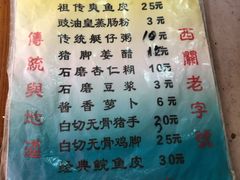 祖传爽鱼皮 25元
豉油皇蒸肠粉 3元
传统艇仔粥 10元
猪脚姜醋 12元
石磨杏仁糊 10元
石磨豆浆 3元
酱香萝卜 6元
白切无骨猪手 20元
白切无骨鸡脚 25元
经典鲩鱼皮 30元
傳統與地道
西關老字號